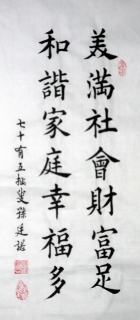 美滿社會財富足
和諧家庭幸福多
七十有五拙叟孫廷諾